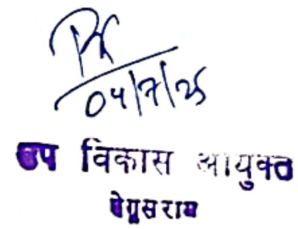 04/7/25
उप विकास आयुक्त
बेगूसराय